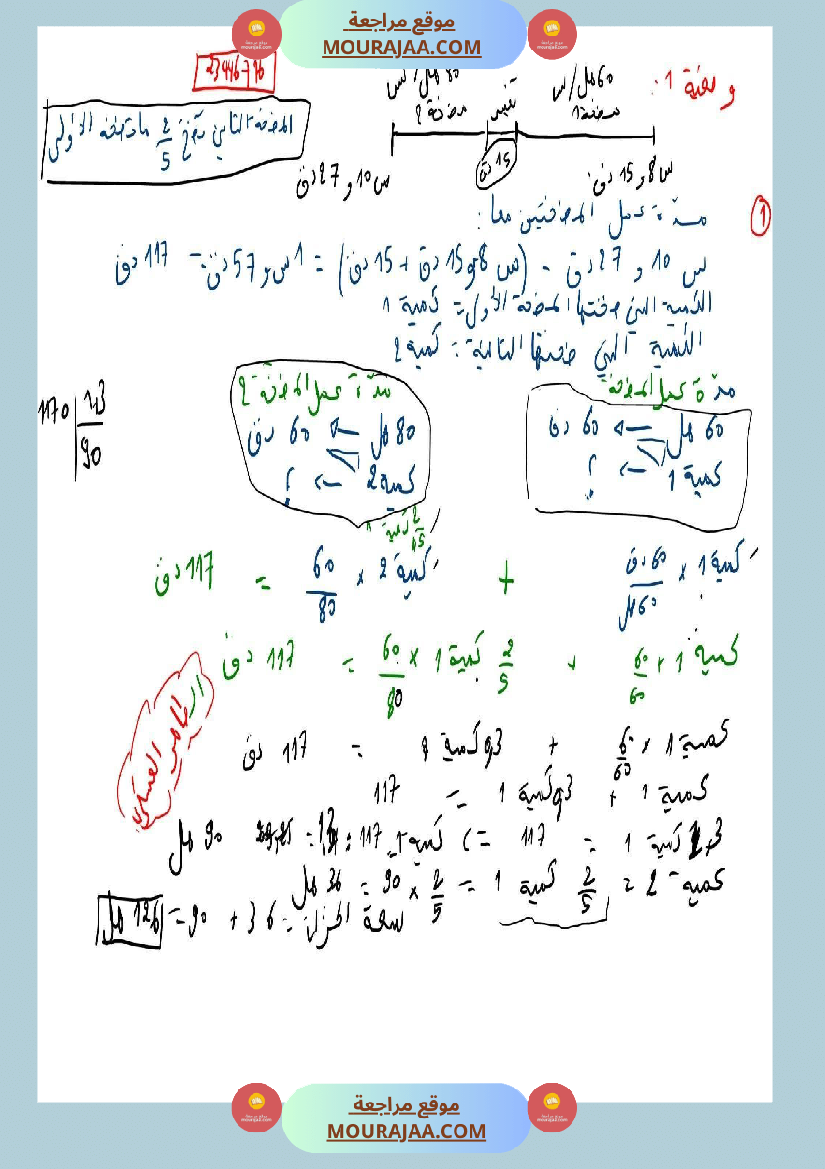 موقع مراجعة
MOURAJAA.COM
وضعية 1:
23446796
60 هل/س
مضخة 1
تغيير
80 هل/س
مضخة 2
15 دق
س 8 و 15 دق
س 10 و 27 دق
المضخة الثاني تضخ 2/5 ما تضخه الأولى
1
مدة عمل المضختين معا:
س 10 و 27 دق - (س 8 و 15 دق + 15 دق) = 1 س و 57 دق = 117 دق
الكمية التي ضختها المضخة الأولى = كمية 1
الكمية التي ضختها الثانية: كمية 2
مدة عمل المضخة
60 هل → 60 دق
كمية 1 → ؟
مدة عمل المضخة 2
80 هل → 60 دق
كمية 2 → ؟
1170 1,3
90
2/5 كمية 1
كمية 1 × 60 دق/60 هل + كمية 2 × 60/80 = 117 دق
كمية 1 × 60/60 + 2/5 كمية 1 × 60/80 = 117 دق
كمية 1 × 60/60 + 0,3 كمية 1 = 117 دق
كمية 1 + 0,3 كمية 1 = 117
1,3 كمية 1 = 117 => كمية 1 = 117 : 1,3 = 90 هل
كمية 2 = 2/5 كمية 1 = 2/5 × 90 = 36 هل
سعة الخزان = 36 + 90 = 126 هل
موقع مراجعة
MOURAJAA.COM